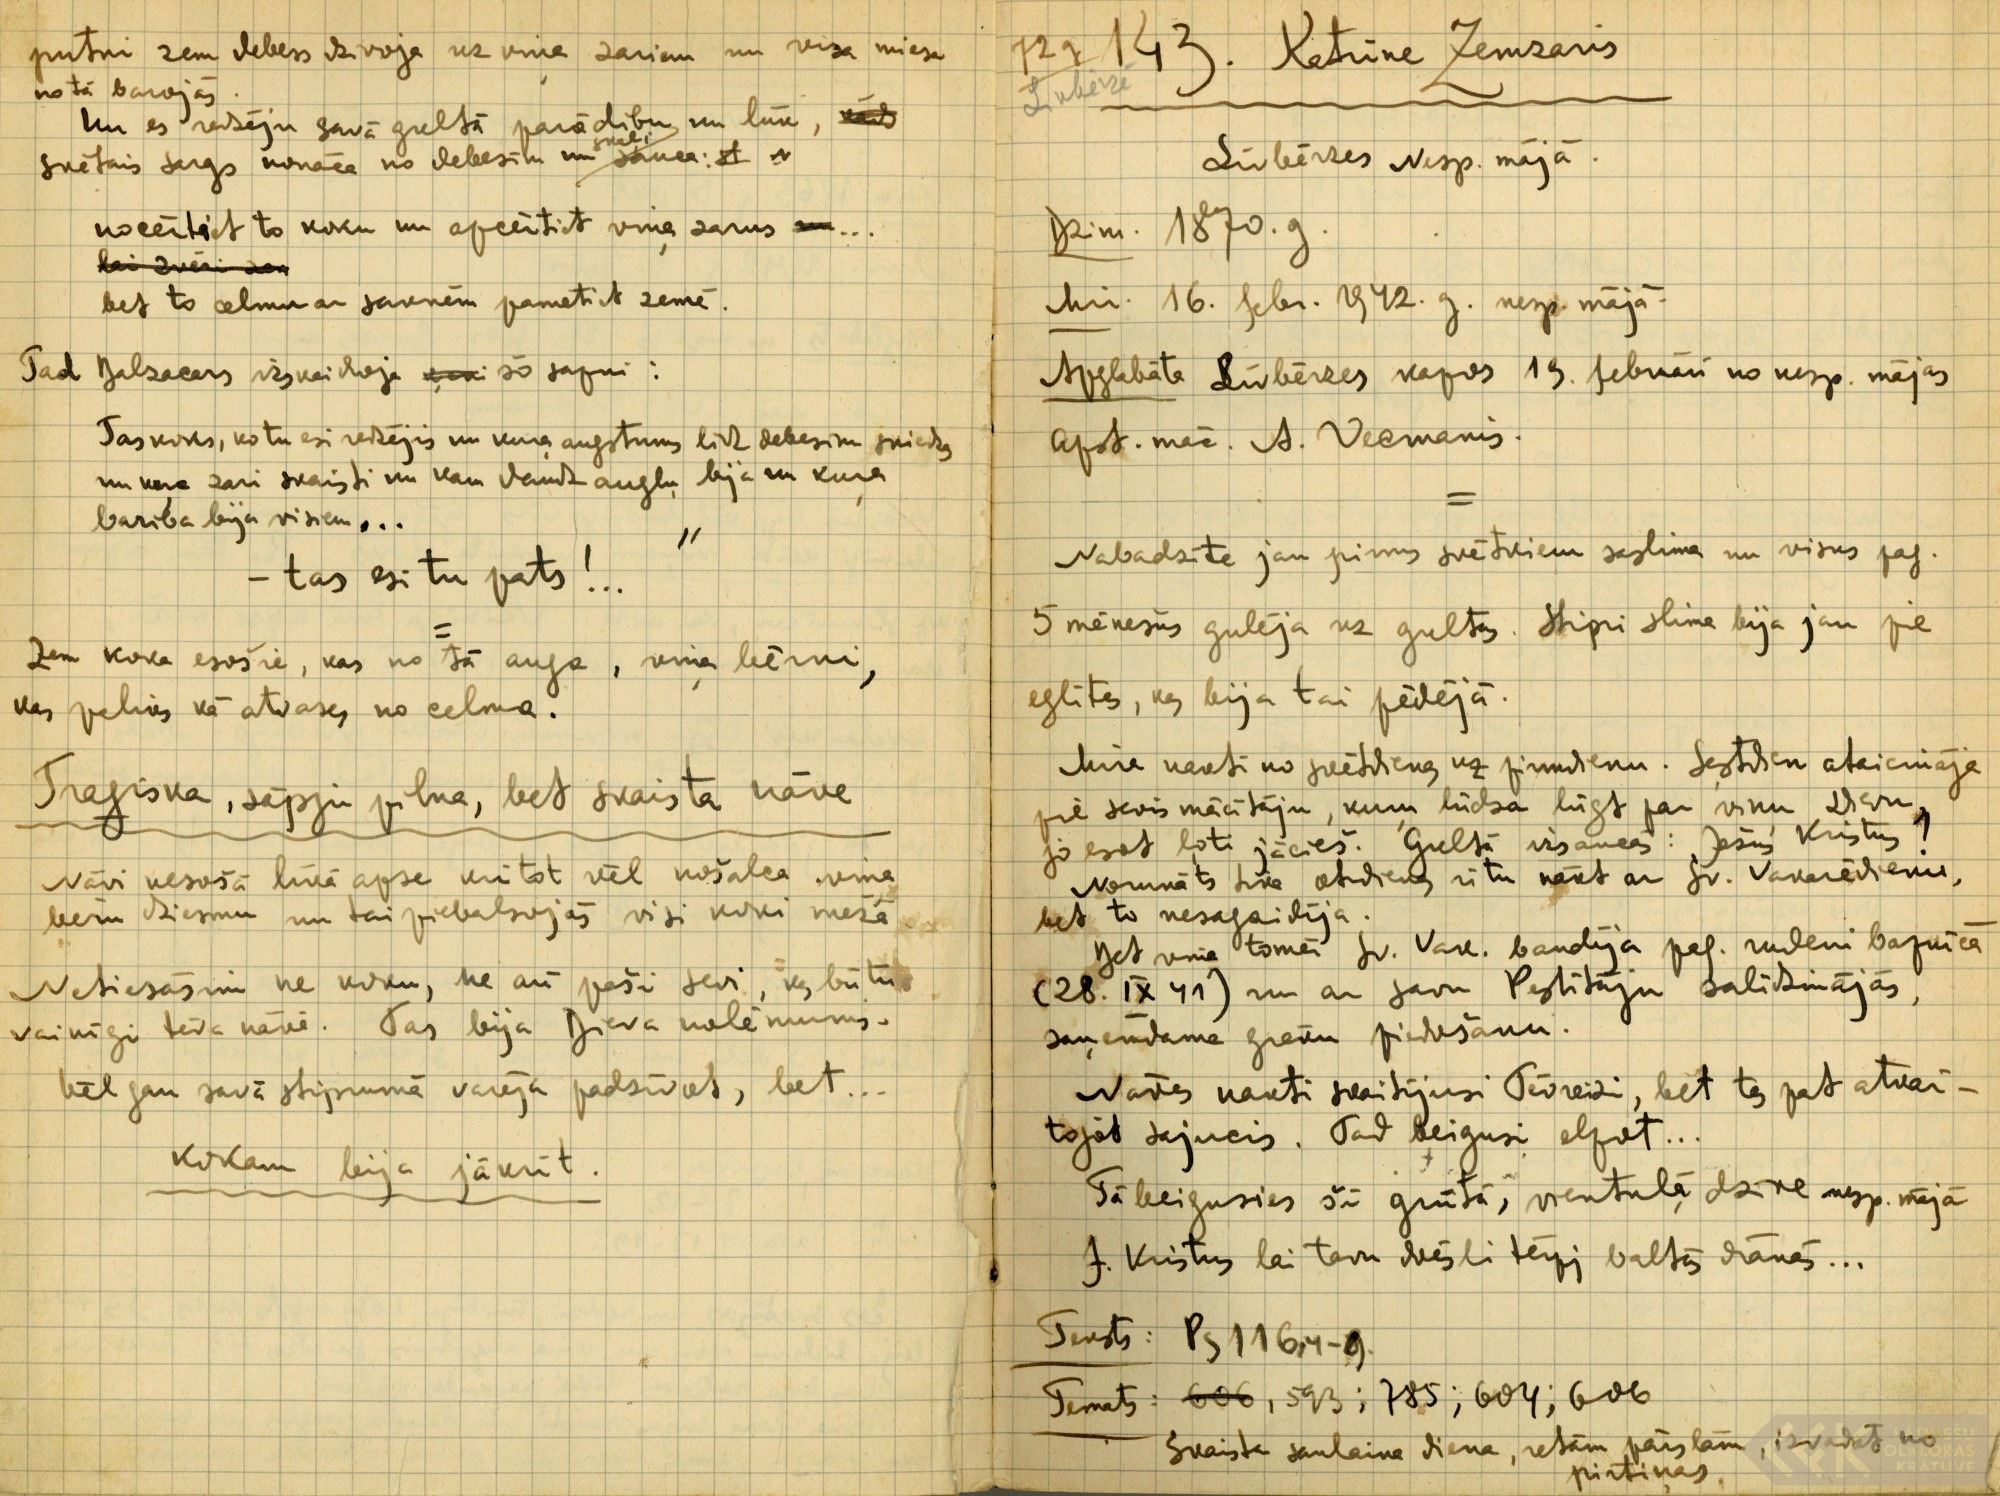 putni zem debess dzivoja uz viņa zariem un visa miesa
no tā barojās.
Un es redzēju savā gultā parādību un lūk,
svētais sargs nonāca no debesīm un sauca:
nocērtiet to koku un apcērtiet viņa zarus un...
lai zvēri zem
bet to celmu ar saknēm pametiet zemē.
Tad Balzacars izskaidroja šo sapni:
Tas koks, ko tu esi redzējis un kuŗa augstums līdz debesim sniedza
un kuŗa zari skaisti un kam daudz augļu bija un kuŗa
bariba bija visiem...
- tas esi tu pats!... "
=
Zem koka esošie, kas no tā auga, viņa bērni,
kas paliks kā atvases no celma.
Tragiska, sāpju pilna, bet skaista nāve
Nāvi nesošā lūkā apse krītot vēl nošalca viņa
bēru dziesmu un tai piebalsojās visi koki mežā
Netiesāsim ne koku, ne arī paši sevi, ka būtu
vainīgi tēva nāvē. Tas bija Dieva nolēmums.
Vēl gan savā stiprumā varēja padzīvot, bet...
kokam bija jākrīt.
72 g 143. Katrīne Zemzaris
Līvbērzē
Līvbērzes Nesp. mājā.
Dzim. 1870. g.
Mir. 16. febr. 1942. g. nesp. mājā.
Apglabāta Līvbērzes kapos 19. februārī no nesp. mājas
apst. māc. A. Vecmanis.
=
Nabadzīte jau pirms svētkiem saslima un visus pag.
5 mēnesus gulēja uz gultas. Stipri slima bija jau pie
eglītes, kas bija tai pēdējā.
Mira naktī no svētdienas uz pirmdienu. Sestdien ataicināja
pie sevis mācītāju, kuŗu lūdza lūgt par viņu Dievu,
jo esot ļoti jācieš. Gultā izsaucās: Jēzus Kristus!
Norunāts tika otrdienas rītu nākt ar Sv. Vakarēdienu,
bet to nesagaidīja.
Bet viņa tomēr Sv. Vak. baudīja pag. rudenī baznīcā
(28. IX 41) un ar savu Pestītāju salīdzinājās,
saņemdama grēku piedošanu.
Nāves naktī skaitījusi Tēvreizi, bet tas pat atkār-
tojot sajucis. Tad beigusi elpot...
Tā beigusies šī grūtā, vientuļā dzīve nesp. mājā
J. Kristus lai tavu dvēsli tērpj baltās drānās...
Teksts: Ps 116,4-9.
Temats: 606, 593; 785; 604; 606
Skaista saulaina diena, retām pārslām, izvadot no
pirtiņas.